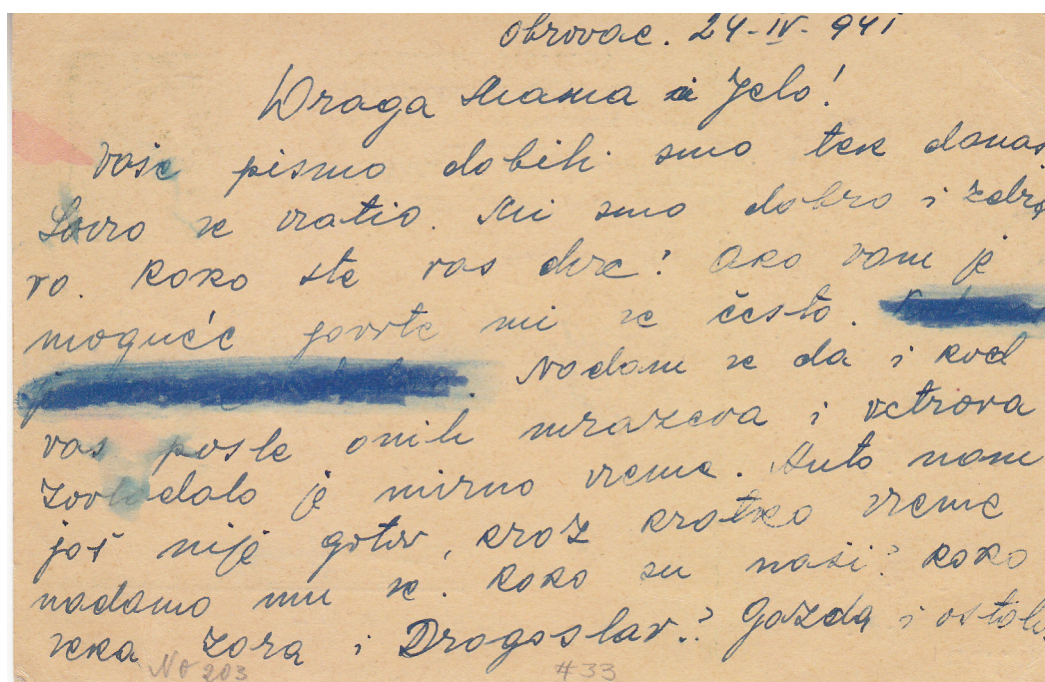 Obrovac. 24-IV-941
Draga Mama i Jelo!
Vaše pismo dobili smo tek danas.
Lovro se vratio. Mi smo dobro i zdra
vo. Kako ste vas dve? Ako vam je
moguće javite mi se često.
Nadam se da i kod
vas posle onih mrazeva i vetrova
zavladalo je mirno vreme. Auto nam
još nije gotov, kroz kratko vreme
nadamo mu se. Kako su naši? Kako
seka Zora i Dragoslav? Gazda i ostali
No 203 #33